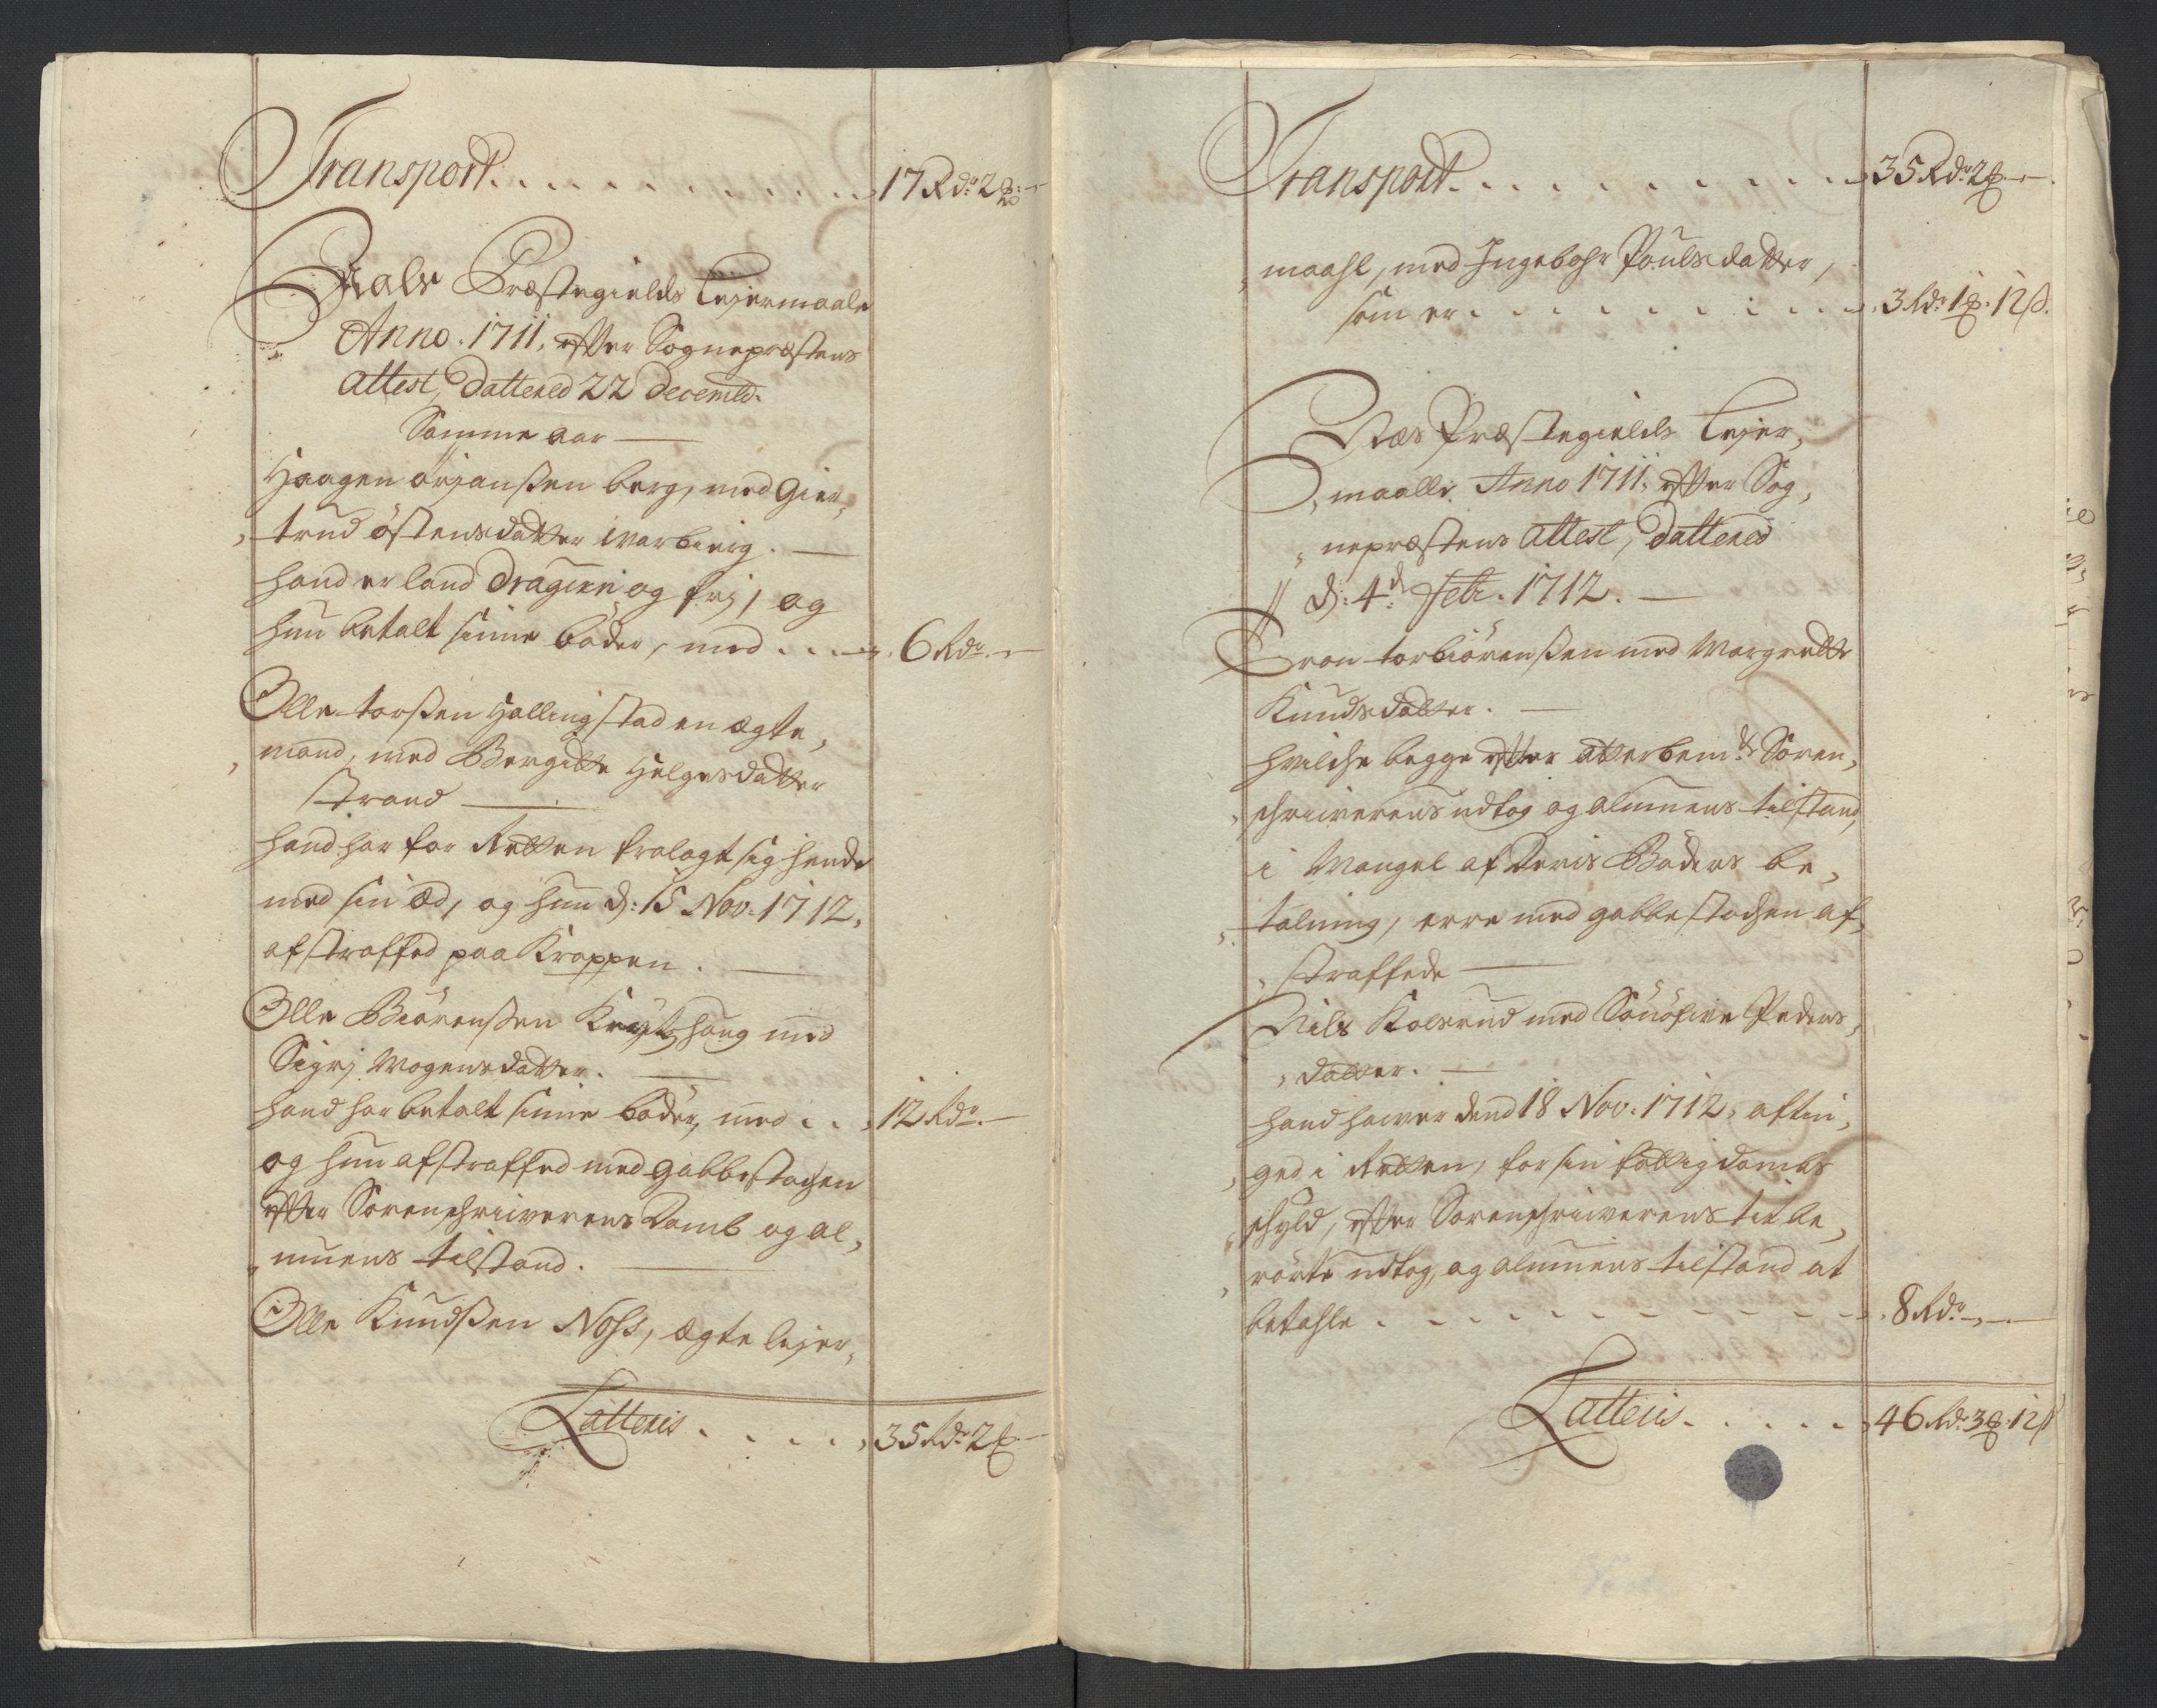 Transport. . . . . . . . . . . . 17 Rdr 2 ℔:—
Aals Præstegields Leiermaale
Anno. 1711. efter Sognepræstens
Attest, Dattered 22 Decembr.
Samme aar —
Haagen örjansßen berg, med Gier,
,trud östensdatter warbierig. —
hand er land Dragun og frj, og
hun betalt sinne böder, med . . . . 6 Rdr. —
Olle torsßen Hallingstad en ægte,
,mand, med Bergitte Helgesdatter
Strand —
hand har for Retten fralagt sig hende
med sin Æd, og hun d: 15 Nov: 1712,
afstraffed paa Kroppen. —
Olle Biörensßen haug med
Sigrj Mogensdatter. —
hand har betalt sinne böder, med . . , 12 Rdr. —
og hun afstraffed med gabbestochen
efter Sorenschriiverens Domb og al,
,muens tilstand. —
Olle Knudsßen Noss, ægte leier,
Latteris. . . . . , 35 Rdr 2 ℔ —
Transport. . . . . . . . . . . . 35 Rdr 2 ℔. —
,maahl, med Ingebohr Poulsdatter,
som er . . . . . . . . . . 3 Rdr 1 ℔. 12 ß.
Næs Præstegields Leier,
,maalle. Anno 1711. efter Sog,
,nepræstens Attest, Dattered
// d: 4d Febr. 1712. —
Tron torbiörensßen med Margrette
Knudsdatter. —
hvilche begge efter atterbemte Soren,
,schriiverens udtog og almuens tilstand,
i Mangel af Deris Böders be,
,talning, erre med gabbestochen af,
,straffede —
Nils Kolsrud med Peders,
,datter. —
hand hawer dend 18 Nov: 1712, aftin,
,ged i Retten, for sin fattigdombs
schyld, efter Sorenschriiverens tit be,
,rörte udtog, og almuens tilstand at
betahle . . . . . . . . . . . 8 Rdr. — —
Latteris. . . . . . 46 Rdr 3 ℔. 12 ß